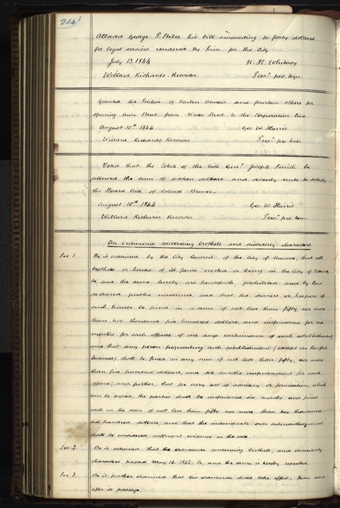 214
Allowed George P. Stiles his bill amounting to forty dollars
for legal services rendered by him for the City
July 13, 1844 N. K. Whitney
Willard Richards Recorder Pres. pro. tem.
Granted the Petition of Carlos and fourteen others for
opening Main Street from Water Street to the Corporation line
August 10th 1844 Geo. W. Harris
Willard Richards Recorder Pres. pro tem
Voted that the of the late Joseph Smith be
allowed the sum of dollars and seventy cents to satisfy
the Board Bill of Colonel Brewer.
August 10th 1844 Geo. W. Harris
Willard Richards Recorder Pres. pro tem
An Ordinance concerning brothels and disorderly characters
Sec. 1. Be it ordained by the City Council of the City of Nauvoo, that all
brothels or houses of ill fame, erected or being in the City of
be and the same hereby are henceforth prohibited and by law
declared public nuisances and that the owners or keepers of
such houses be fined in a sum of not less than fifty nor more
than two thousand five hundred dollars and imprisoned for six
months for each offence of one days continuance of such establishment,
and that any person frequenting such establishment (except on lawful
business) shall be fined in any sum of not less than fifty nor more
than five hundred dollars, and six months imprisonment for each
offence; and further, that for every act of adultery or fornication, which
can be proved, the parties shall be imprisoned six months and fined
each in the sum of not less than fifty nor more than two thousand
five hundred dollars; and that the individuals own acknowledgment
shall be considered sufficient evidence in the case.
Sec. 2. Be it ordained that the ordinance concerning brothels and disorderly
characters passed May 14, 1842, be, and the same is hereby repealed.
Sec. 3. Be it further ordained that this ordinance shall take effect from and
after its passage.